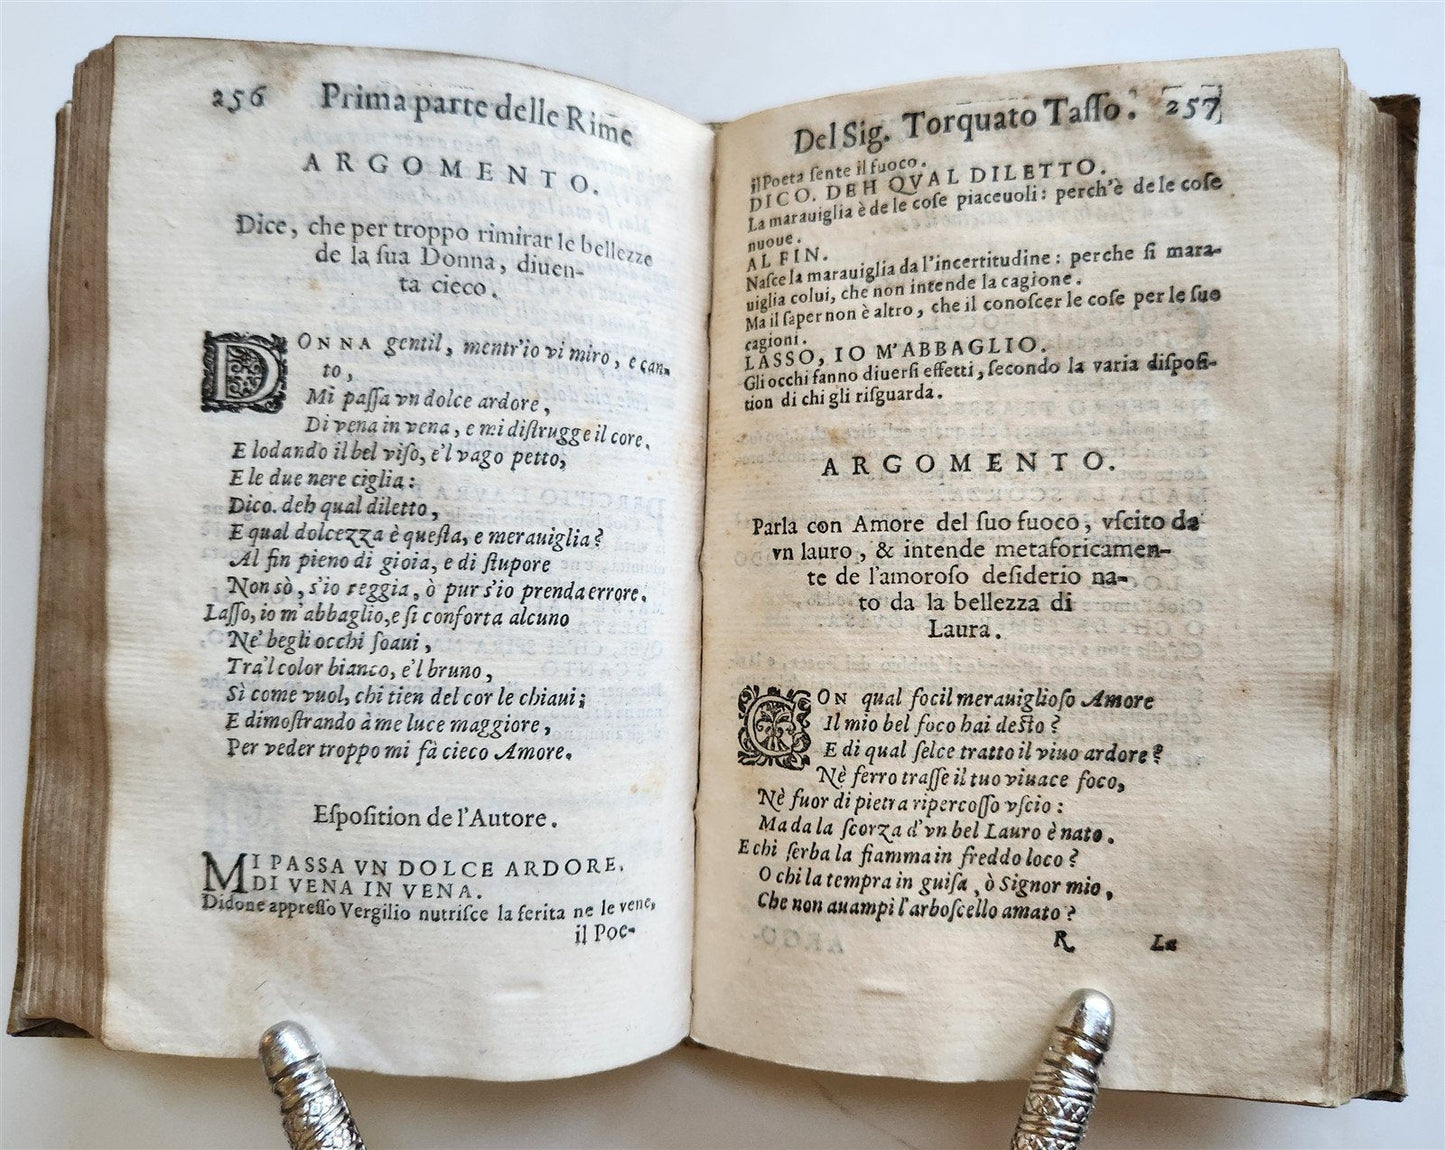 256 Prima parte delle Rime
ARGOMENTO.
Dice, che per troppo rimirar le bellezze
de la ſua Donna, diuen-
ta cieco.
DONNA gentil, mentr'io vi miro, e can-
to,
Mi paſſa vn dolce ardore,
Di vena in vena, e mi diſtrugge il core.
E lodando il bel viſo, e'l vago petto,
E le due nere ciglia:
Dico. deh qual diletto,
E qual dolcezza è queſta, e merauiglia?
Al fin pieno di gioia, e di ſtupore
Non sò, s'io reggia, ò pur s'io prenda errore.
Laſſo, io m'abbaglio, e ſi conforta alcuno
Ne' begli occhi ſoaui,
Tra'l color bianco, e'l bruno,
Sì come vuol, chi tien del cor le chiaui;
E dimoſtrando à me luce maggiore,
Per veder troppo mi fà cieco Amore.
Eſpoſition de l'Autore.
MI PASSA VN DOLCE ARDORE,
DI VENA IN VENA.
Didone appreſſo Vergilio nutriſce la ferita ne le vene,
il Poe-
Del Sig. Torquato Taſſo. 257
il Poeta ſente il fuoco.
DICO. DEH QVAL DILETTO.
La marauiglia è de le coſe piaceuoli: perch'è de le coſe
nuoue.
AL FIN.
Naſce la marauiglia da l'incertitudine: perche ſi mara-
uiglia colui, che non intende la cagione.
Ma il ſaper non è altro, che il conoſcer le coſe per le ſue
cagioni.
LASSO, IO M'ABBAGLIO.
Gli occhi fanno diuerſi effetti, ſecondo la varia diſpoſi-
tion di chi gli riſguarda.
ARGOMENTO.
Parla con Amore del ſuo fuoco, vſcito da
vn lauro, & intende metaforicamen-
te de l'amoroſo deſiderio na-
to da la bellezza di
Laura.
CON qual focil merauiglioſo Amore
Il mio bel foco hai deſto?
E di qual ſelce tratto il viuo ardore?
Nè ferro traſſe il tuo viuace foco,
Nè fuor di pietra ripercoſſo vſcio:
Ma da la ſcorza d'vn bel Lauro è nato.
E chi ſerba la fiamma in freddo loco?
O chi la tempra in guiſa, ò Signor mio,
Che non auampi l'arboſcello amato?
R La